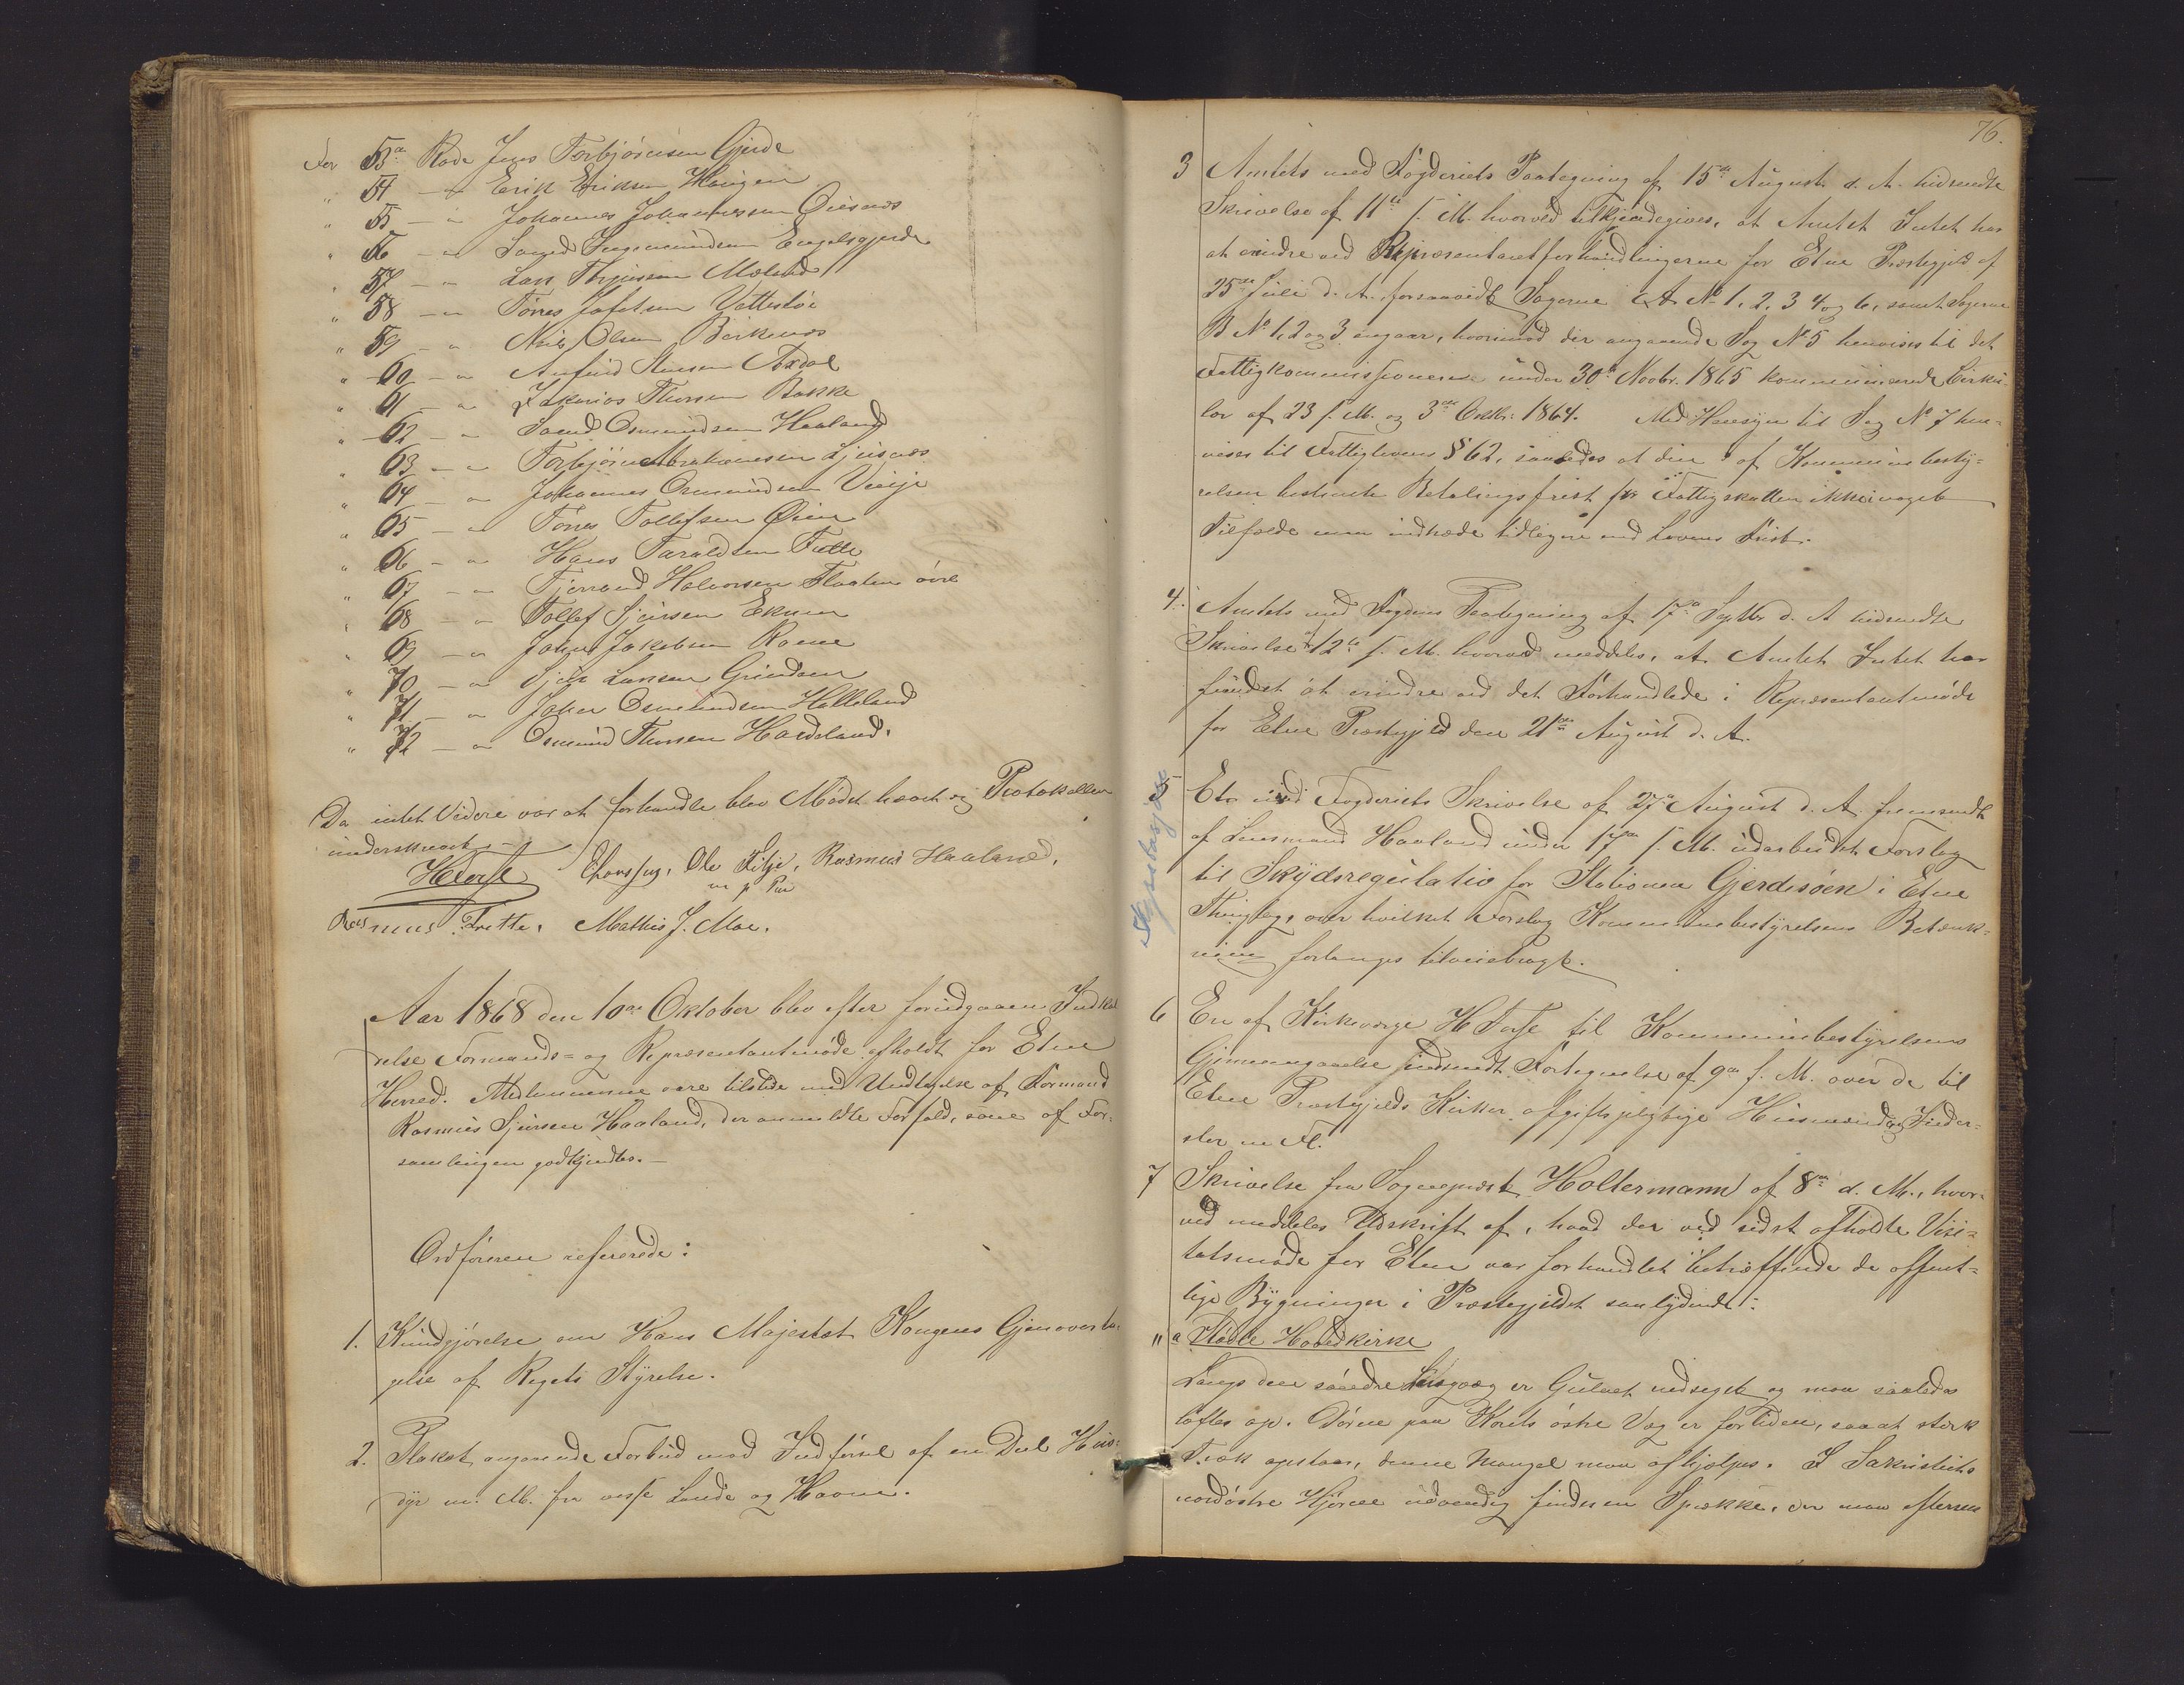 For 53de Rode Jens Torbjørnsen Gjerde
" 54 - " Erik Eriksen Haugen
" 55 - " Johannes Johannessen Øiesnes
" 56 - " Ingemundsen Engelsgjerde
" 57 - " Lars Thrjussen Mæland
" 58 - " Tørres Jofetsen Vattestøe
" 59 - " Nils Olsen Birkenes
" 60 - " Anfind Axdal
" 61 - " Zakarias Thorsen Bakke
" 62 - " Osmundsen Haaland
" 63 - " Torbjørn Abrahamsen Ljusnes
" 64 - " Johannes Osmundsen
" 65 - " Tørres Tollefsen Øien
" 66 - " Hans Taraldsen Tutle
" 67 - " Tjerrand Halvorsen Flaaten øvre
" 68 - " Tollef Sjursen Ekrene
" 69 - " Johan Jakobsen Rame
" 70 - " Sjur Larsen Grindem
" 71 - " Johan Osmundsen Halleland
" 72 - " Osmund Thorsen Hardeland.
Da intet Videre var at forhandle blev Mødet hævet og Protokollen
underskrevet. -
HTorsk Ole Fitje, Rasmus Haaland,
m p Pen
Rasmus Frette. Mathis J. Moe.
Aar 1868 den 10de Oktober blev efter forudgaaen Indkal
relse Formands= og Repræsentantmøde afholdt for Etne
Herred. Medlemmerne vare tilstede med Undtagelse af Formand
Rasmus Sjursen Haaland, der anmeldte Forfald, som af For-
samlingen godkjendtes. -
Ordføreren refererede:
1. Kundgjørelse om Hans Majestæt Kongens Gjenoverta-
gelse af Rigets Styrelse.
2. Plakat angaaende Forbud mod Indførsel af en Deel Huus=
dyr m. M. fra visse Lande og Havne.
76.
3 Amtets med Fogderiets Paategning af 15de August d. A. hidsendte
Skrivelse af 11te s. M. hvorved tilkjendegives, at Amtet Intet har
at erindre ved Repræsentantforhandlingerne for Etne Præstegjeld af
25de Juli d. A. forsaavidt Sagerne A No 1, 2, 3 4 og 6, samt Sagerne
B No 1, 2 og 3 angaar, hvorimod der angaaende Sag No 5 henvises til det
Fattigkommissionerne under 30te Novbr. 1865 kommunicerede Cirku-
lær af 23 s. M. og 3die Oktbr. 1864. Med Hensyn til Sag No 7 hen=
vises til Fattiglovens § 62, saaledes at den af Kommunebesty=
relsen bestemte Betalingsfrist for Fattigskatten ikke i noget
Tilfælde maa indtræde tidligere end Lovens Frist.
4. Amtets med Fogdens Paategning af 17de Septbr d. A hidsendte
Skrivelse 12te s. M. hvorved meddeles, at Amtet Intet har
fundet at erindre ved det Forhandlede i Repræsentantmøde
for Etne Præstegjeld den 21de August d. A.
Skydsvæsen
5 Et med Fogderiets Skrivelse af 27de August d. A. fremsendt
af Lensmand Haaland under 17de s. M. udarbeidet Forslag
til Skydsregulativ for Stationen Gjerdesøen i Etne
Thinglag, over hvilket Forslag Kommunebestyrelsens Betænk=
ning forlanges tilveiebragt.
6 En af Kirkeværge H Torsk til Kommunebestyrelsens
Gjennemgaaelse indsendt Fortegnelse af 9de s. M. over de til
Etne Præstegjelds Kirker afgiftspligtige Huusmænd og Inder=
ster m Fl.
7 Skrivelse fra Sognepræst Holtermann af 8de d. M., hvor-
ved meddeles Udskrift af, hvad der ved sidst afholdte Visi=
tatsmøde for Etne var forhandlet betræffende de offent=
lige Bygninger i Præstegjeldet saalydende:
" a Stødle Hovedkirke
Langs den søndre Langvæg er Gulvet nedseget og maa saaledes
løftes op. Døren paa Korets østre Væg er forliden, saaat stærk
Træk opstaar, denne Mangel maa afhjælpes. I Sakristiets
nordøstre Hjørne udvendig findes en Sprække, der maa efterses